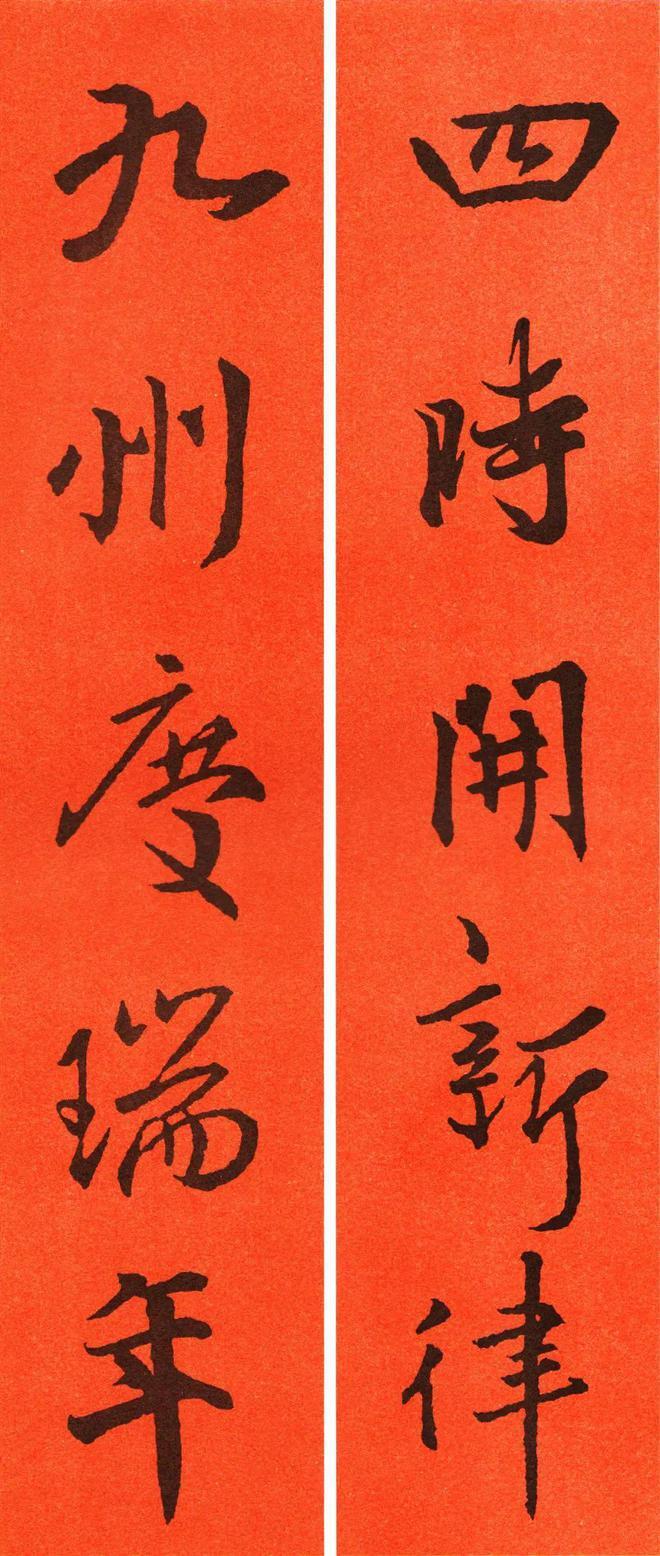 四時開新律
九州度瑞年